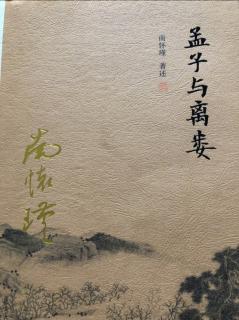 孟子与离娄
南怀瑾 著述
南懷瑾